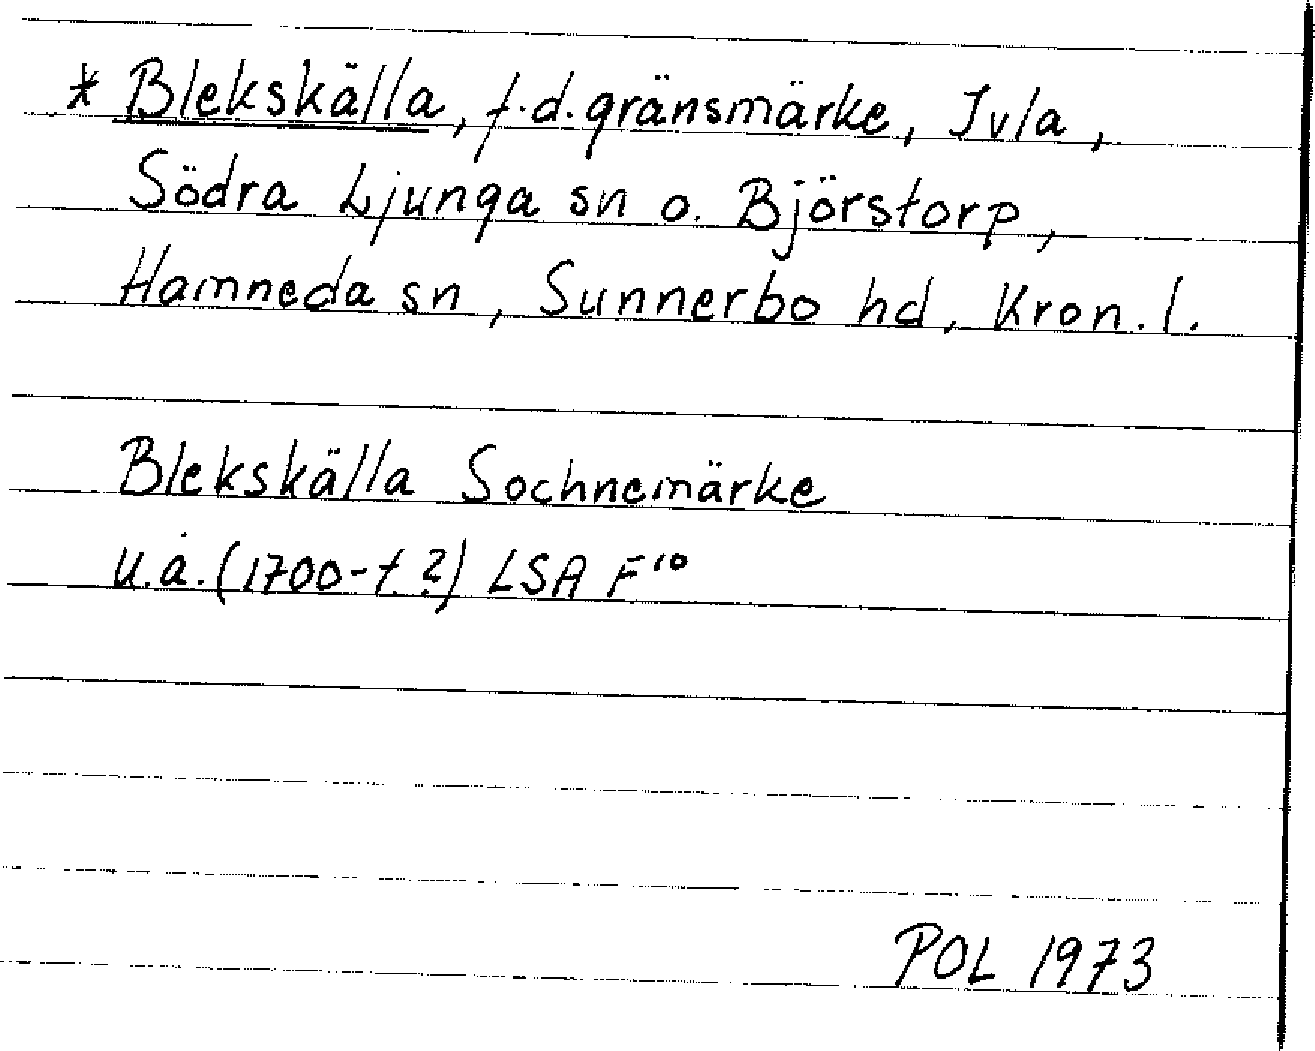 * Blekskälla, f.d. gränsmärke, Ivla,
Södra Ljunga sn o. Björstorp,
Hamneda sn, Sunnerbo hd, Kron. l.
Blekskälla Sochnemärke
u.å. (1700-t. ?) LSA F¹⁰
POL 1973